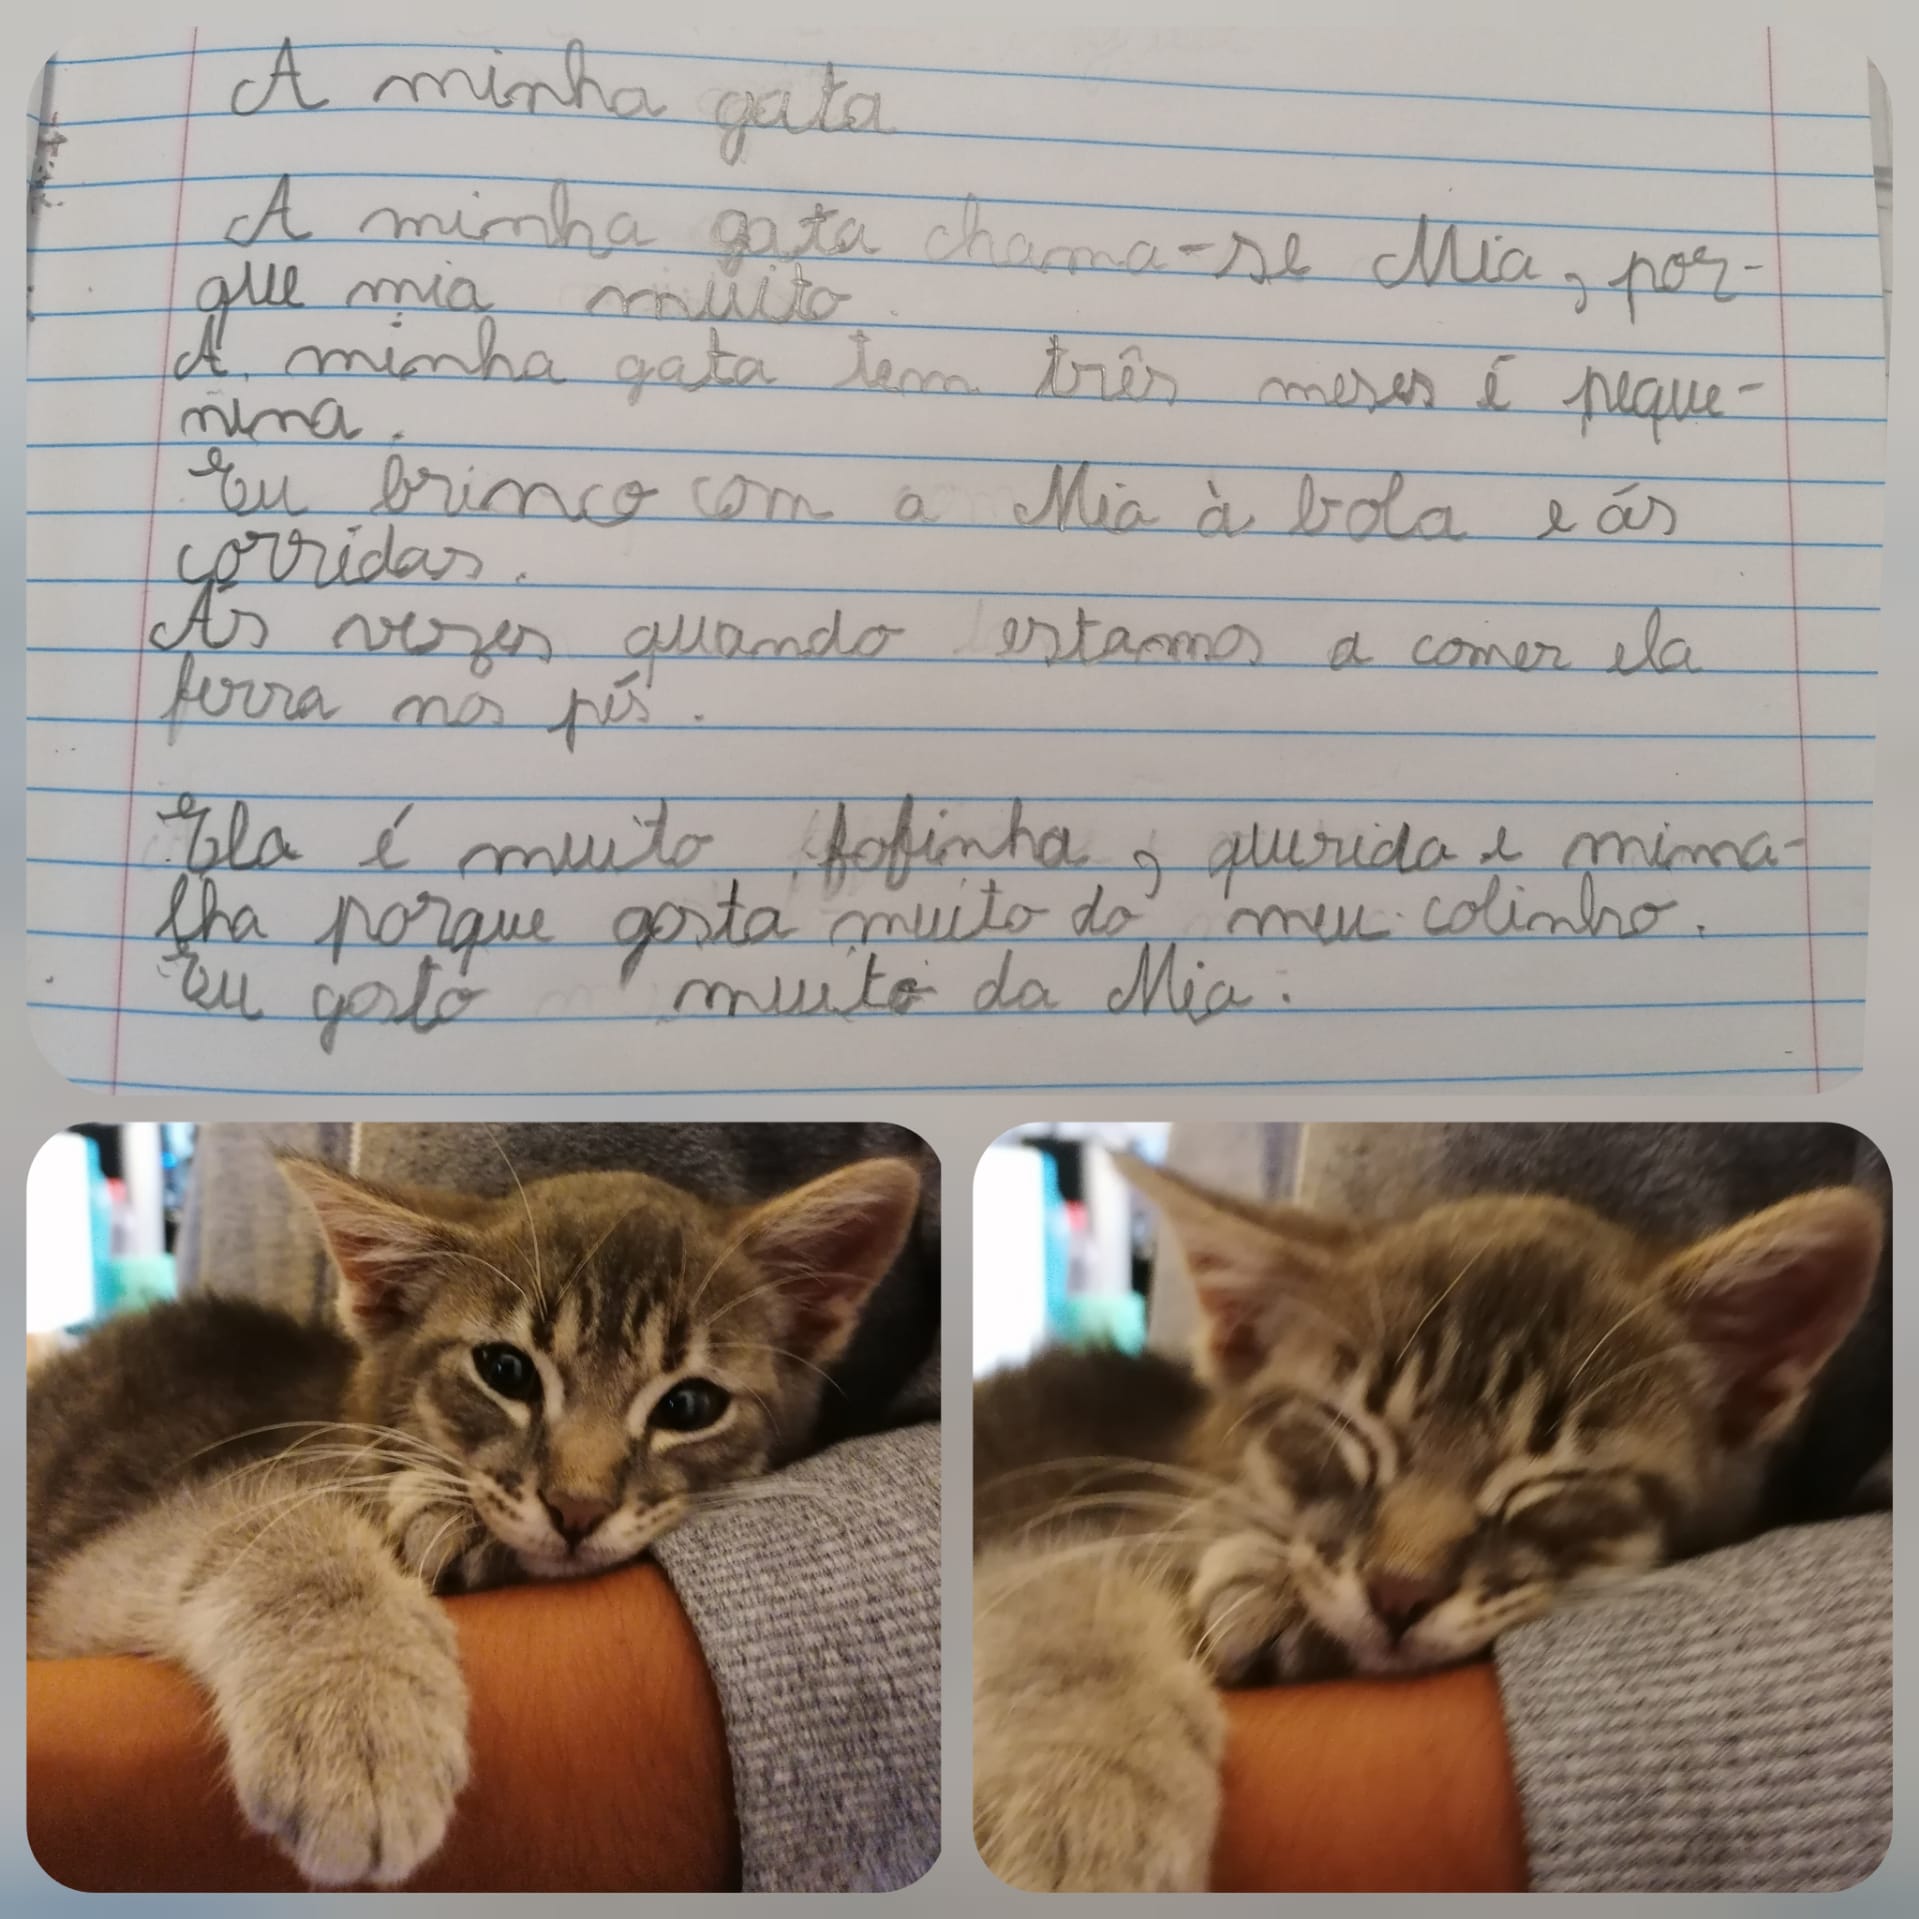 A minha gata
A minha gata chama-se Mia, por-
que mia muito.
A minha gata tem três meses é peque-
nina.
Eu brinco com a Mia à bola e ás
corridas.
Ás vezes quando estamos a comer ela
ferra nos pés.
Ela é muito fofinha, querida e mima-
lha porque gosta muito do meu colinho.
Eu gosto muito da Mia.